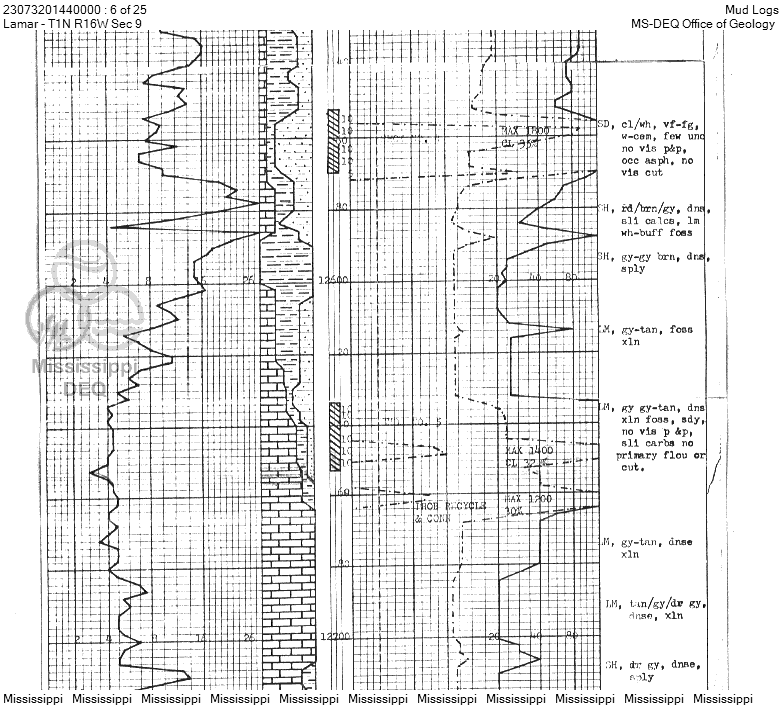 23073201440000 : 6 of 25
Mud Logs
Lamar - T1N R16W Sec 9
MS-DEQ Office of Geology
40
10
10
10
10
MAX 1800
CL 35%
SD, cl/wh, vf-fg,
w-cem, few unc
no vis p&p,
occ asph, no
vis cut
80
SH, rd/brn/gy, dns,
sli calcs, lm
wh-buff foss
SH, gy-gy brn, dns,
sply
2 4 8 16 26
12500
20 40 80
LM, gy-tan, foss
xln
20
Mississippi
DEQ
10
10
10
10
LM, gy gy-tan, dns
xln foss, sdy,
no vis p &p,
sli carbs no
primary flou or
cut.
MAX 1400
CL
60
MAX 1200
30%
RECYCLE
& CONN
LM, gy-tan, dnse
xln
80
LM, tan/gy/dr gy,
dnse, xln
2 4 8 16 26
12700
20 40 80
SH, dr gy, dnse,
sply
Mississippi Mississippi Mississippi Mississippi Mississippi Mississippi Mississippi Mississippi Mississippi Mississippi Mississippi